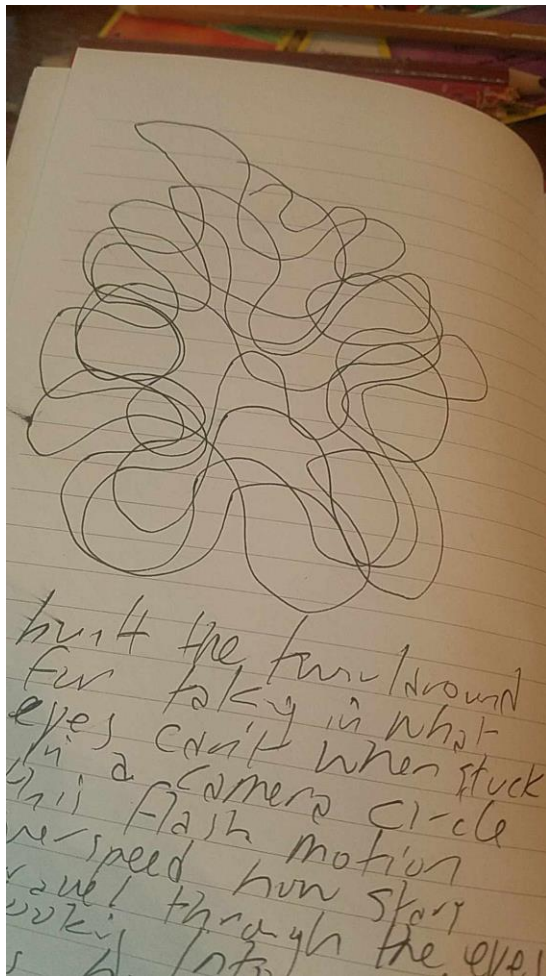 built the turn/around
for taking in what
eyes can't when stuck
in a camera circle
this flash motion
speed how stars
travel through the eyes
into